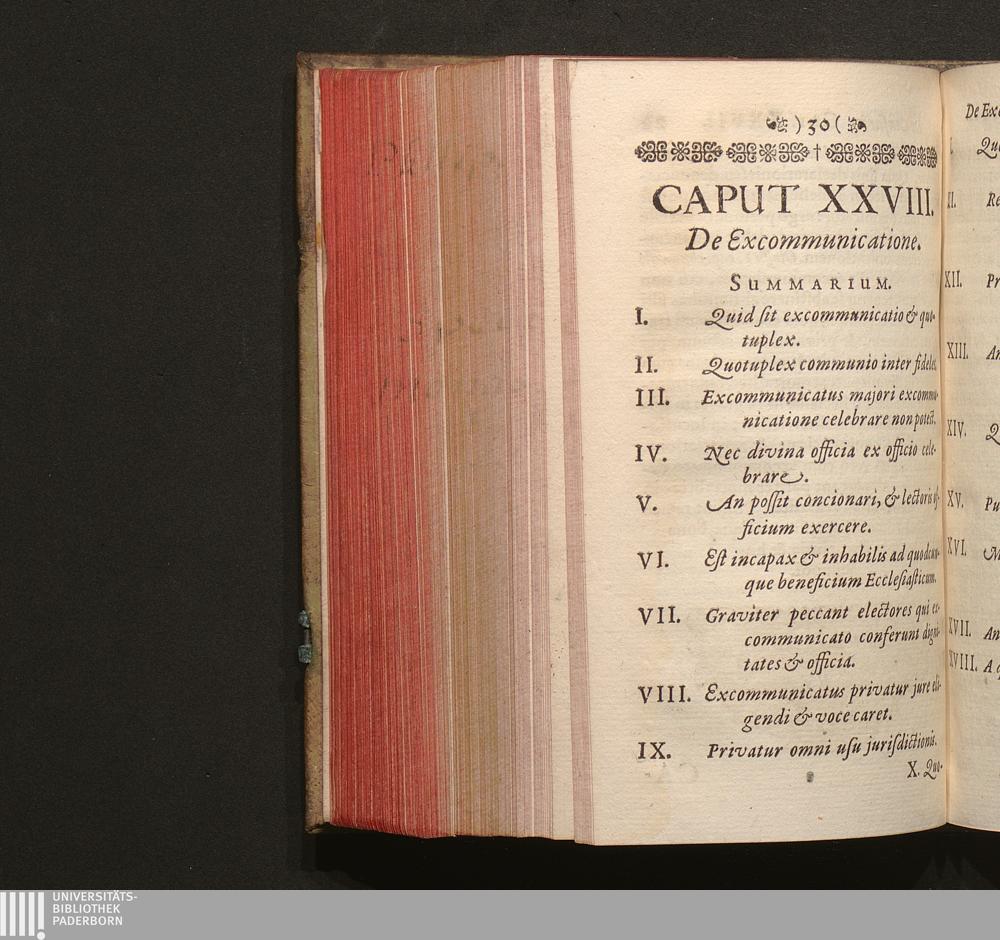 ) 30 (
CAPUT XXVIII.
De Excommunicatione.
SUMMARIUM.
I. Quid ſit excommunicatio & quo-
tuplex.
II. Quotuplex communio inter fideles.
III. Excommunicatus majori excommu-
nicatione celebrare non poteſt.
IV. Nec divina officia ex officio cele-
brare.
V. An poſſit concionari, & lectoris of-
ficium exercere.
VI. Eſt incapax & inhabilis ad quodcun-
que beneficium Eccleſiaſticum.
VII. Graviter peccant electores qui ex-
communicato conferunt digni-
tates & officia.
VIII. Excommunicatus privatur jure eli-
gendi & voce caret.
IX. Privatur omni uſu jurisdictionis.
X. Quo-
De Exc
Qu
XI. Re
XII. Pr
XIII. An
XIV. Q
XV. Pu
XVI.
XVII. An
XVIII. A q
UNIVERSITÄTS-
BIBLIOTHEK
PADERBORN